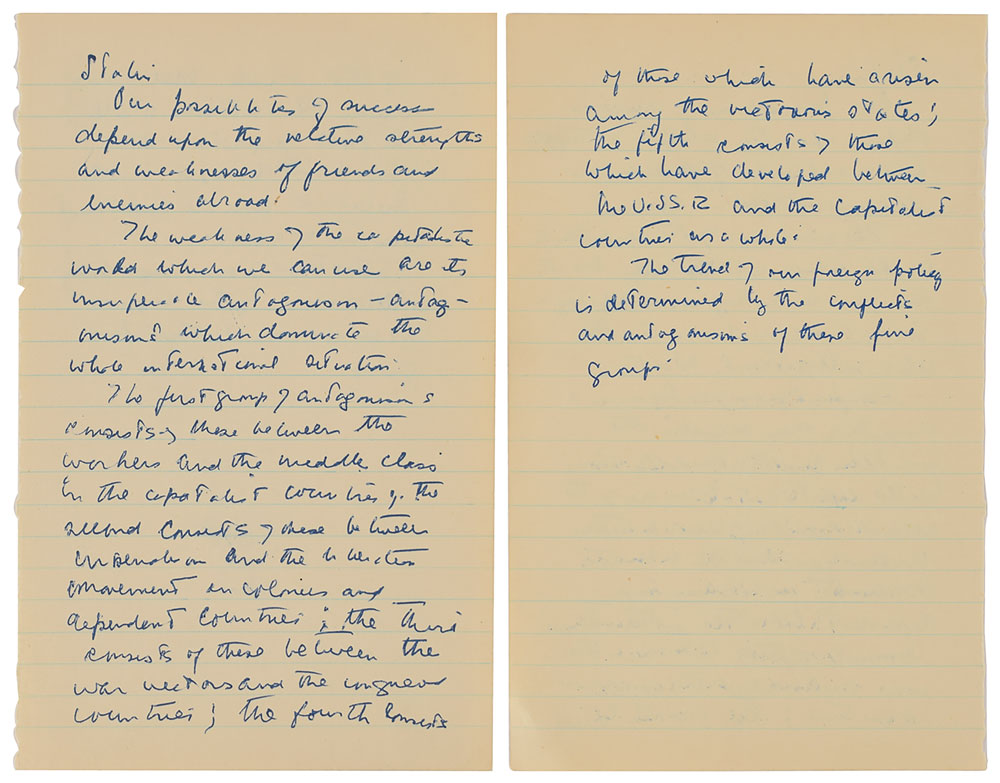 Stalin
Our possibilities of success
depend upon the relative strengths
and weaknesses of friends and
enemies abroad.
The weakness of the capitalistic
world which we can use are its
insuperable antagonisms – antag-
onisms which dominate the
whole international situation
The first group of antagonisms
consists of these between the
workers and the middle class
in the capitalist countries; the
second consists of these between
imperialism and the liberation
movement in colonies and
dependent countries; the third
consists of these between the
war victors and the conquered
countries; the fourth consists
of those which have arisen
among the victorious states;
the fifth consists of those
which have developed between
the U.S.S.R and the capitalist
countries as a whole.
The trend of our foreign policy
is determined by the conflicts
and antagonisms of these five
groups